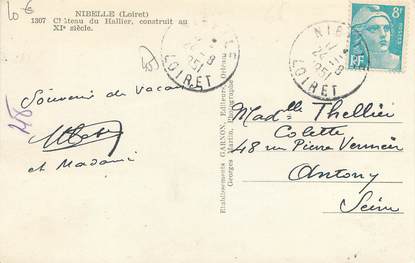 NIBELLE (Loiret)
1307 Château du Hallier, construit au
XIe siècle.
Souvenir de vacances
et Madame
Etablissements GARNON, Editeurs, Orléans
Georges Martin, Photographe
NIBELLE
1951
LOIRET
LOIRET
8F
RF
Madelle Thellier
Colette
48 rue Pierre Vermeir
Antony
Seine
48